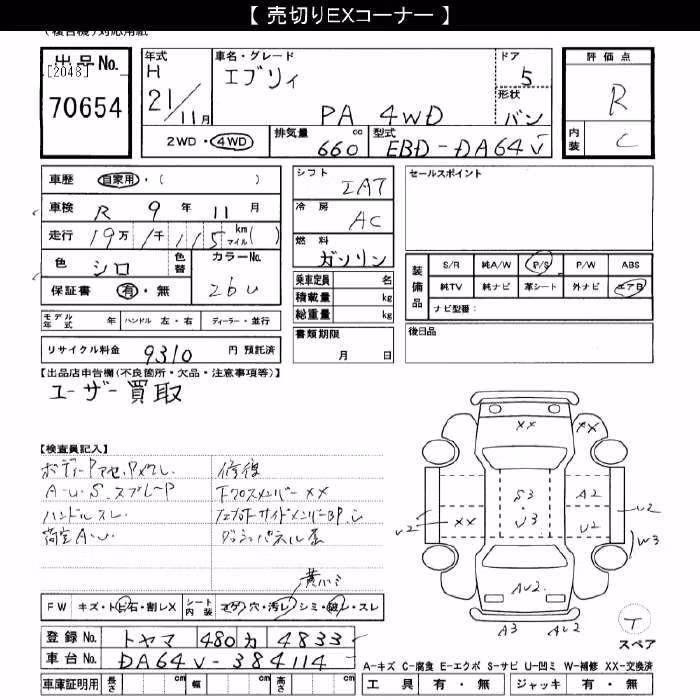 【 売切りEXコーナー 】
出品No.
[2048]
70654
年式
H
21/11月
車名・グレード
エブリィ
PA 4WD
ドア
5
形状
バン
評価点
R
内装
C
2WD・4WD
排気量
660 cc
型式
EBD-DA64V
車歴 自家用・( )
車検 R 9 年 11 月
走行 19万 1千 115 km マイル( )
色 シロ
色替
カラーNo.
26U
保証書 有・無
モデル年式 年 ハンドル 左・右 ディーラー・並行
リサイクル料金 9310 円 預託済
シフト
IAT
冷房
AC
燃料
ガソリン
乗車定員 名
積載量 kg
総重量 kg
書類期限
月 日
セールスポイント
装備品
S/R 純A/W P/S P/W ABS
純TV 純ナビ 革シート 外ナビ エアB
ナビ型番:
後日品
【出品店申告欄(不良箇所・欠品・注意事項等)】
ユーザー買取
【検査員記入】
A-U.S.スプレーP
ハンドルスレ
荷室A.U
修復
下クロスメンバーXX
FW キズ・トビ石・割レX
シート内装 コゲ・穴・汚レ・シミ・破レ・スレ
登録No. トヤマ 480 カ 4833
車台No. DA64V-384114
車庫証明用 長さ cm 幅 cm 高さ cm
XX
XX
S3
U3
A2
U2
U2
U2
XX
W3
AU2
A3
AU2
T
スペア
A-キズ C-腐食 E-エクボ S-サビ U-凹ミ W-補修 XX-交換済
工具 有・無 ジャッキ 有・無